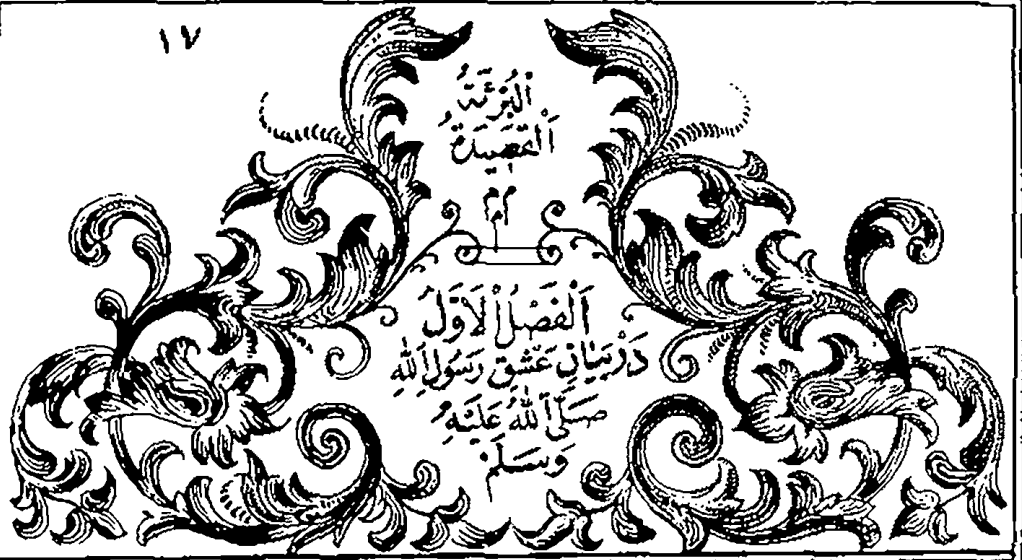 ١٧
اَلْبُرْئَةُ
اَلْقَصِيدَةُ
اَلْفَصْلُ الْاَوَّلُ
دَرْ بَيَانِ عَشْقِ رَسُولِ اللهِ
صَلَّى اللهُ عَلَيْهِ
وَسَلَّمَ